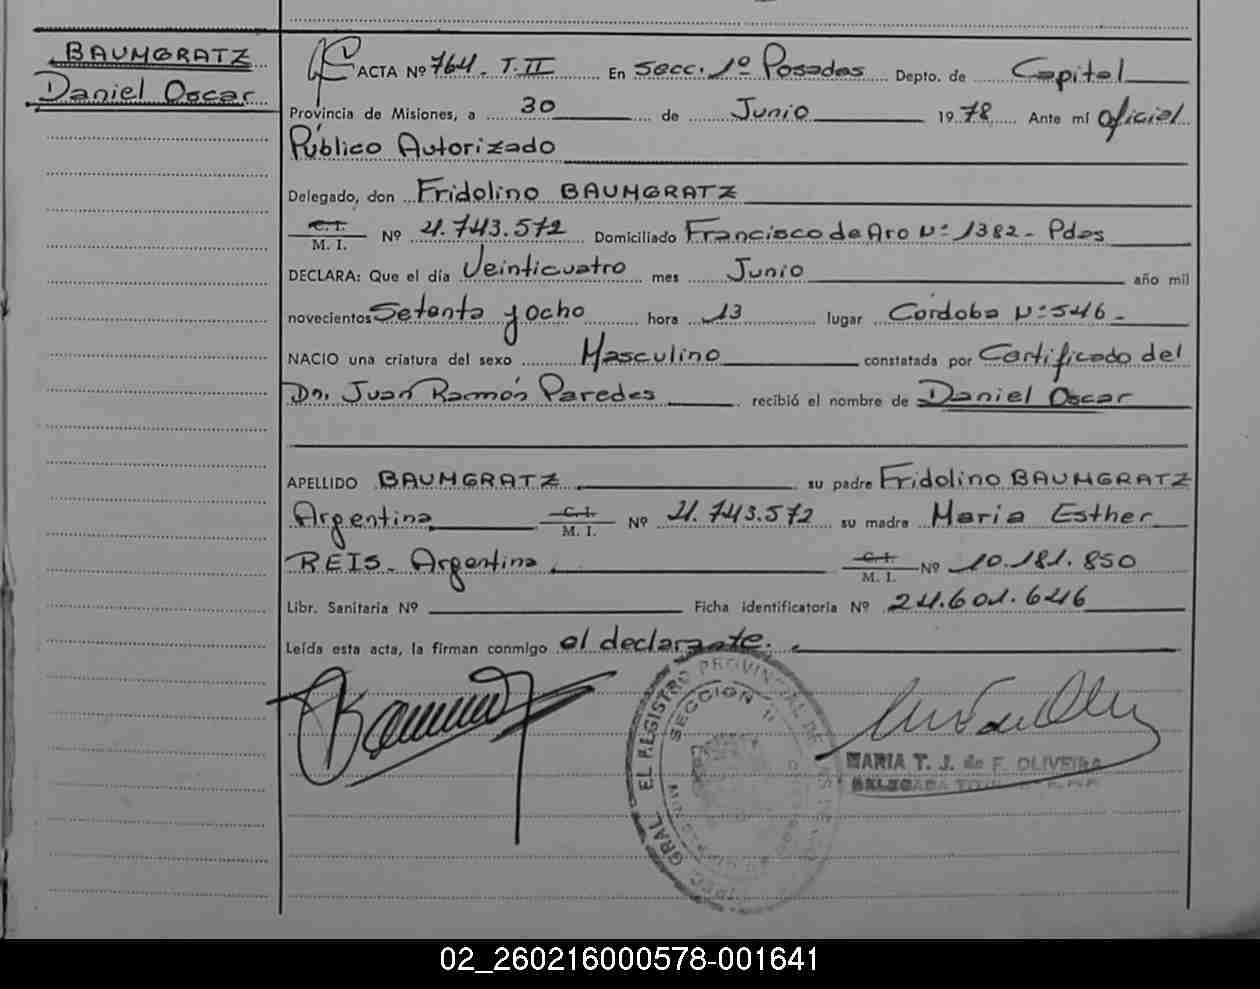 BAUMGRATZ
Daniel Oscar
ACTA Nº 764. T. II En secc. 1º Posadas Depto. de Capital
Provincia de Misiones, a 30 de Junio 1978 Ante mí Oficial
Público Autorizado
Delegado, don Fridolino BAUMGRATZ
C. I.
M. I. Nº 4.743.572 Domiciliado Francisco de Aro Nº 1382 - Pdas
DECLARA: Que el día Veinticuatro mes Junio año mil
novecientos Setenta y Ocho hora 13 lugar Córdoba Nº 546 -
NACIO una criatura del sexo Masculino constatada por Certificado del
Dr. Juan Ramón Paredes recibió el nombre de Daniel Oscar
APELLIDO BAUMGRATZ su padre Fridolino BAUMGRATZ
Argentina C. I. M. I. Nº 4.743.572 su madre Maria Esther
REIS - Argentina C. I. M. I. Nº 10.181.850
Libr. Sanitaria Nº Ficha identificatoria Nº 24.601.646
Leída esta acta, la firman conmigo el declarante.
GRAL. EL REGISTRO PROVINCIAL DE
SECCION 1ª
MARIA T. J. de F. OLIVEIRA
DELEGADA
02_260216000578-001641